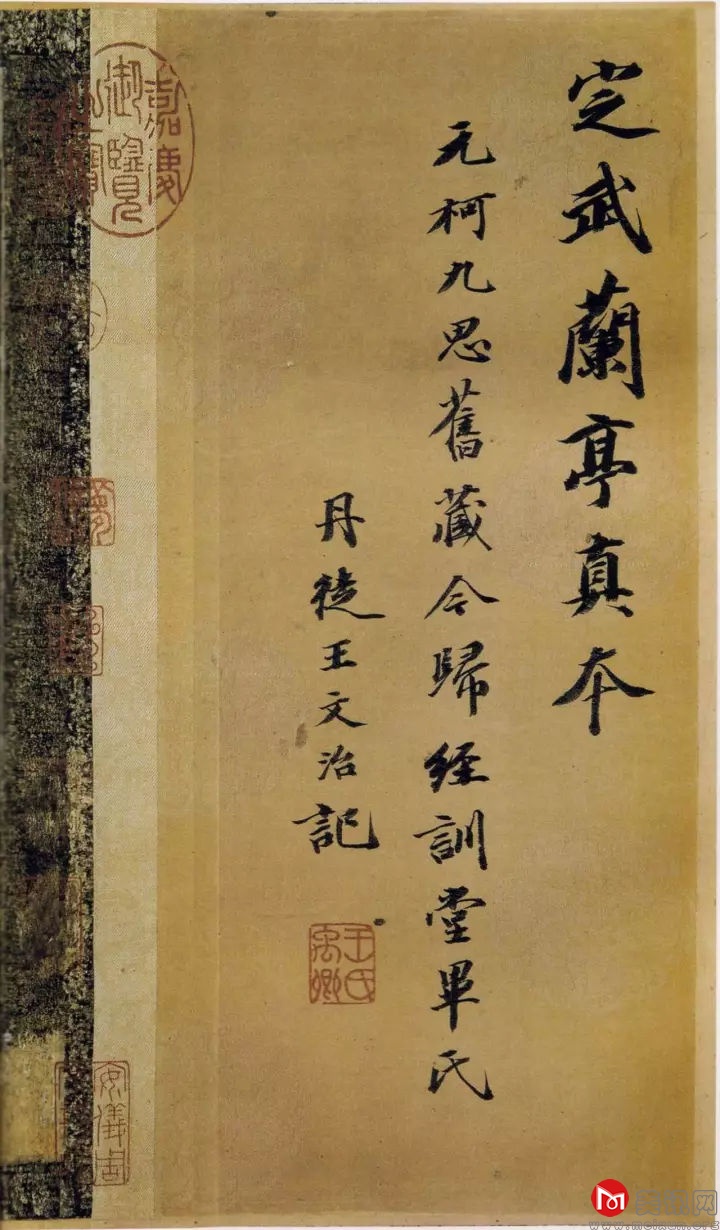 定武蘭亭真本
元柯九思舊藏今歸經訓堂畢氏
丹徒王文治記
王氏禹卿
嘉慶御覽之寶